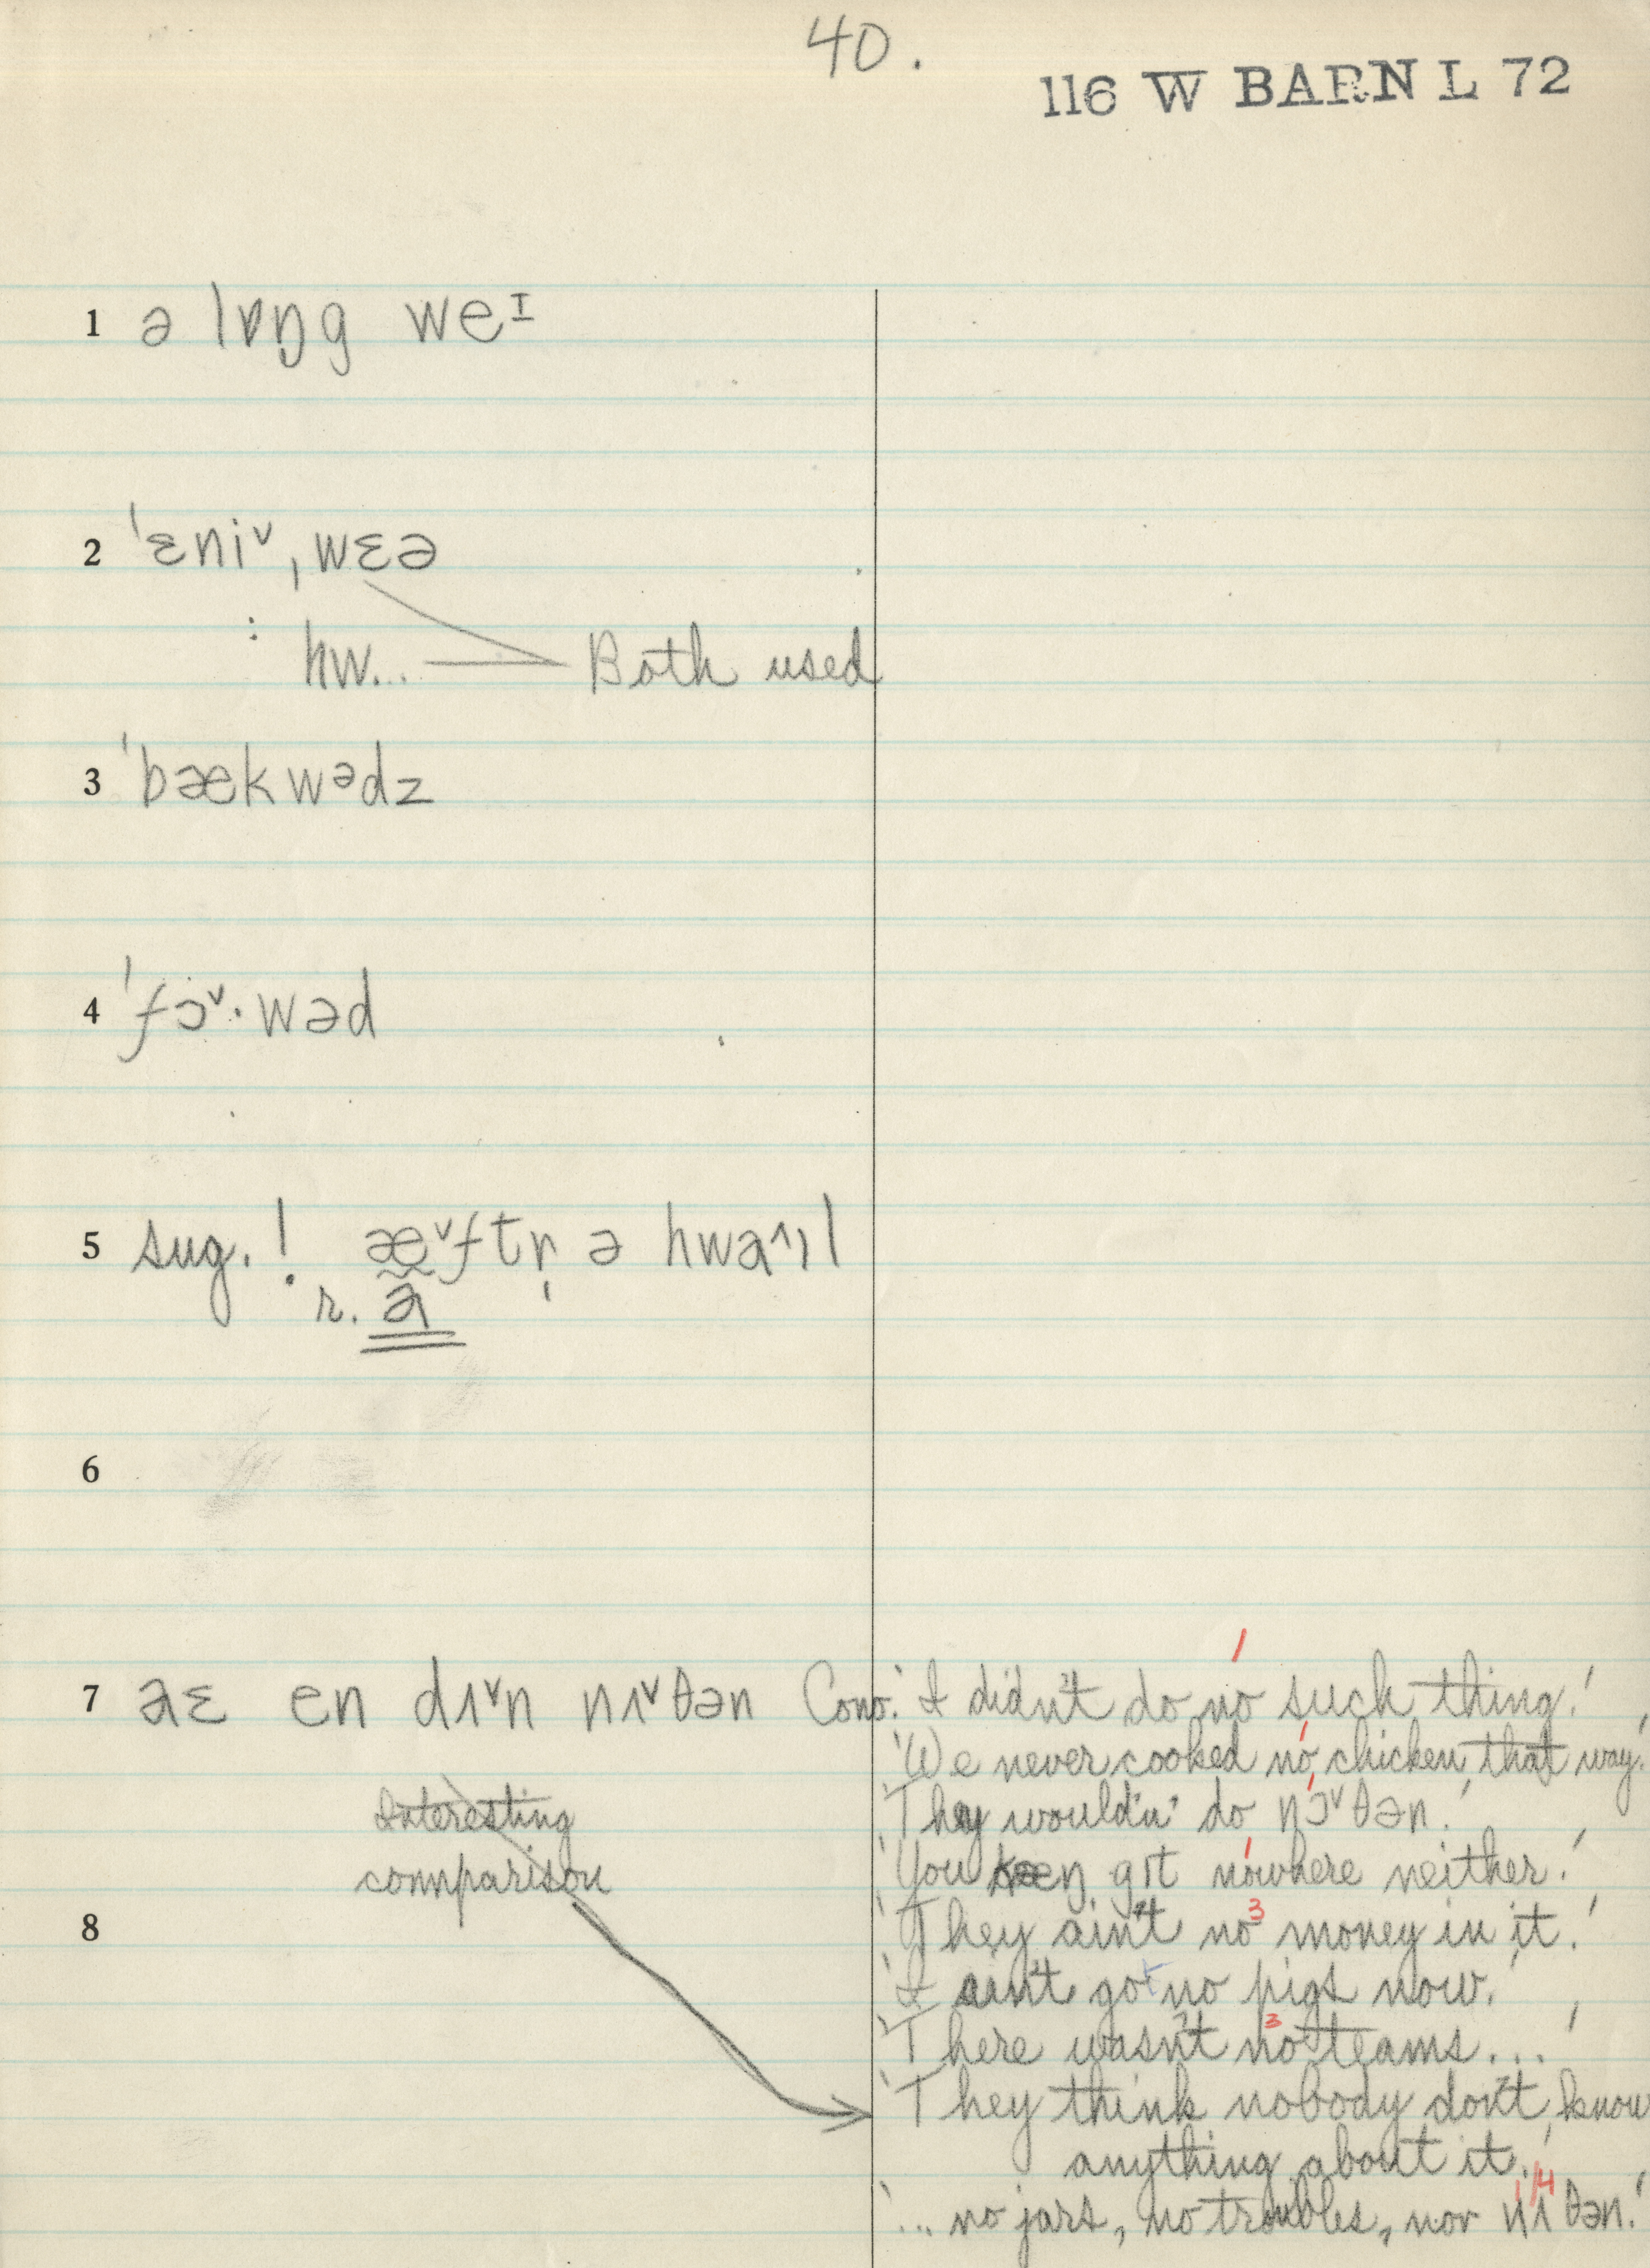 40.
116 W BARN L 72
1 ə lɒŋg weᴵ
2 ˈɛniˇˌwɛə
: hw... Both used
3 ˈbækwᵊdz
4 ˈfɔˇ·wəd
5 sug. ! æˇftr̩ ə hwaˆɪl
r. a
6
7 aɛ en dʌˇn nʌˇθən Conv. 'I didn't do no such thing.'
'We never cooked no chicken that way.'
Interesting
'They wouldn' do nɔˇθən.'
comparison
'You kæŋ git nowhere neither.'
8
'They ain't no money in it.'
'I ain't got no pigs now.'
'There wasn't no teams...'
'They think nobody don't know
anything about it.'
'... no jars, no troubles, nor nʌθən.'